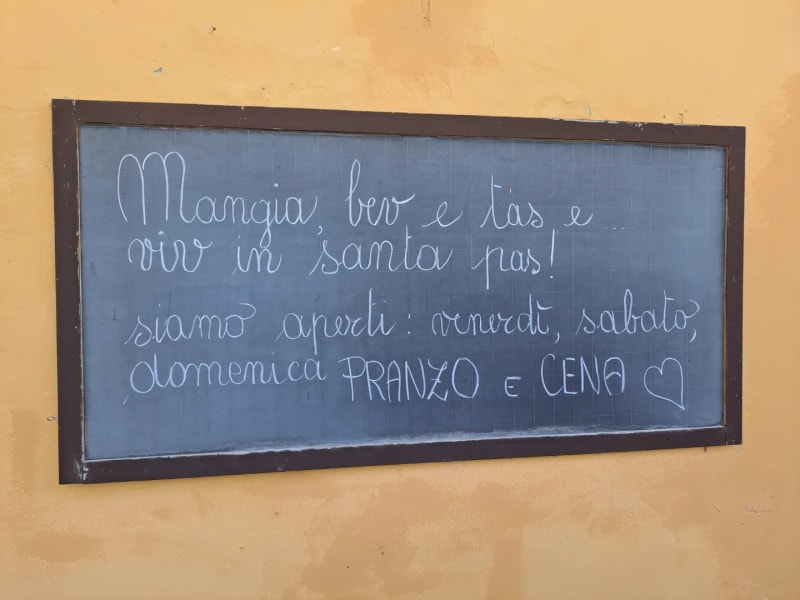 Mangia, bev e tàs e ...
viv in santa pas!
siamo aperti: venerdì, sabato,
domenica PRANZO E CENA ♡